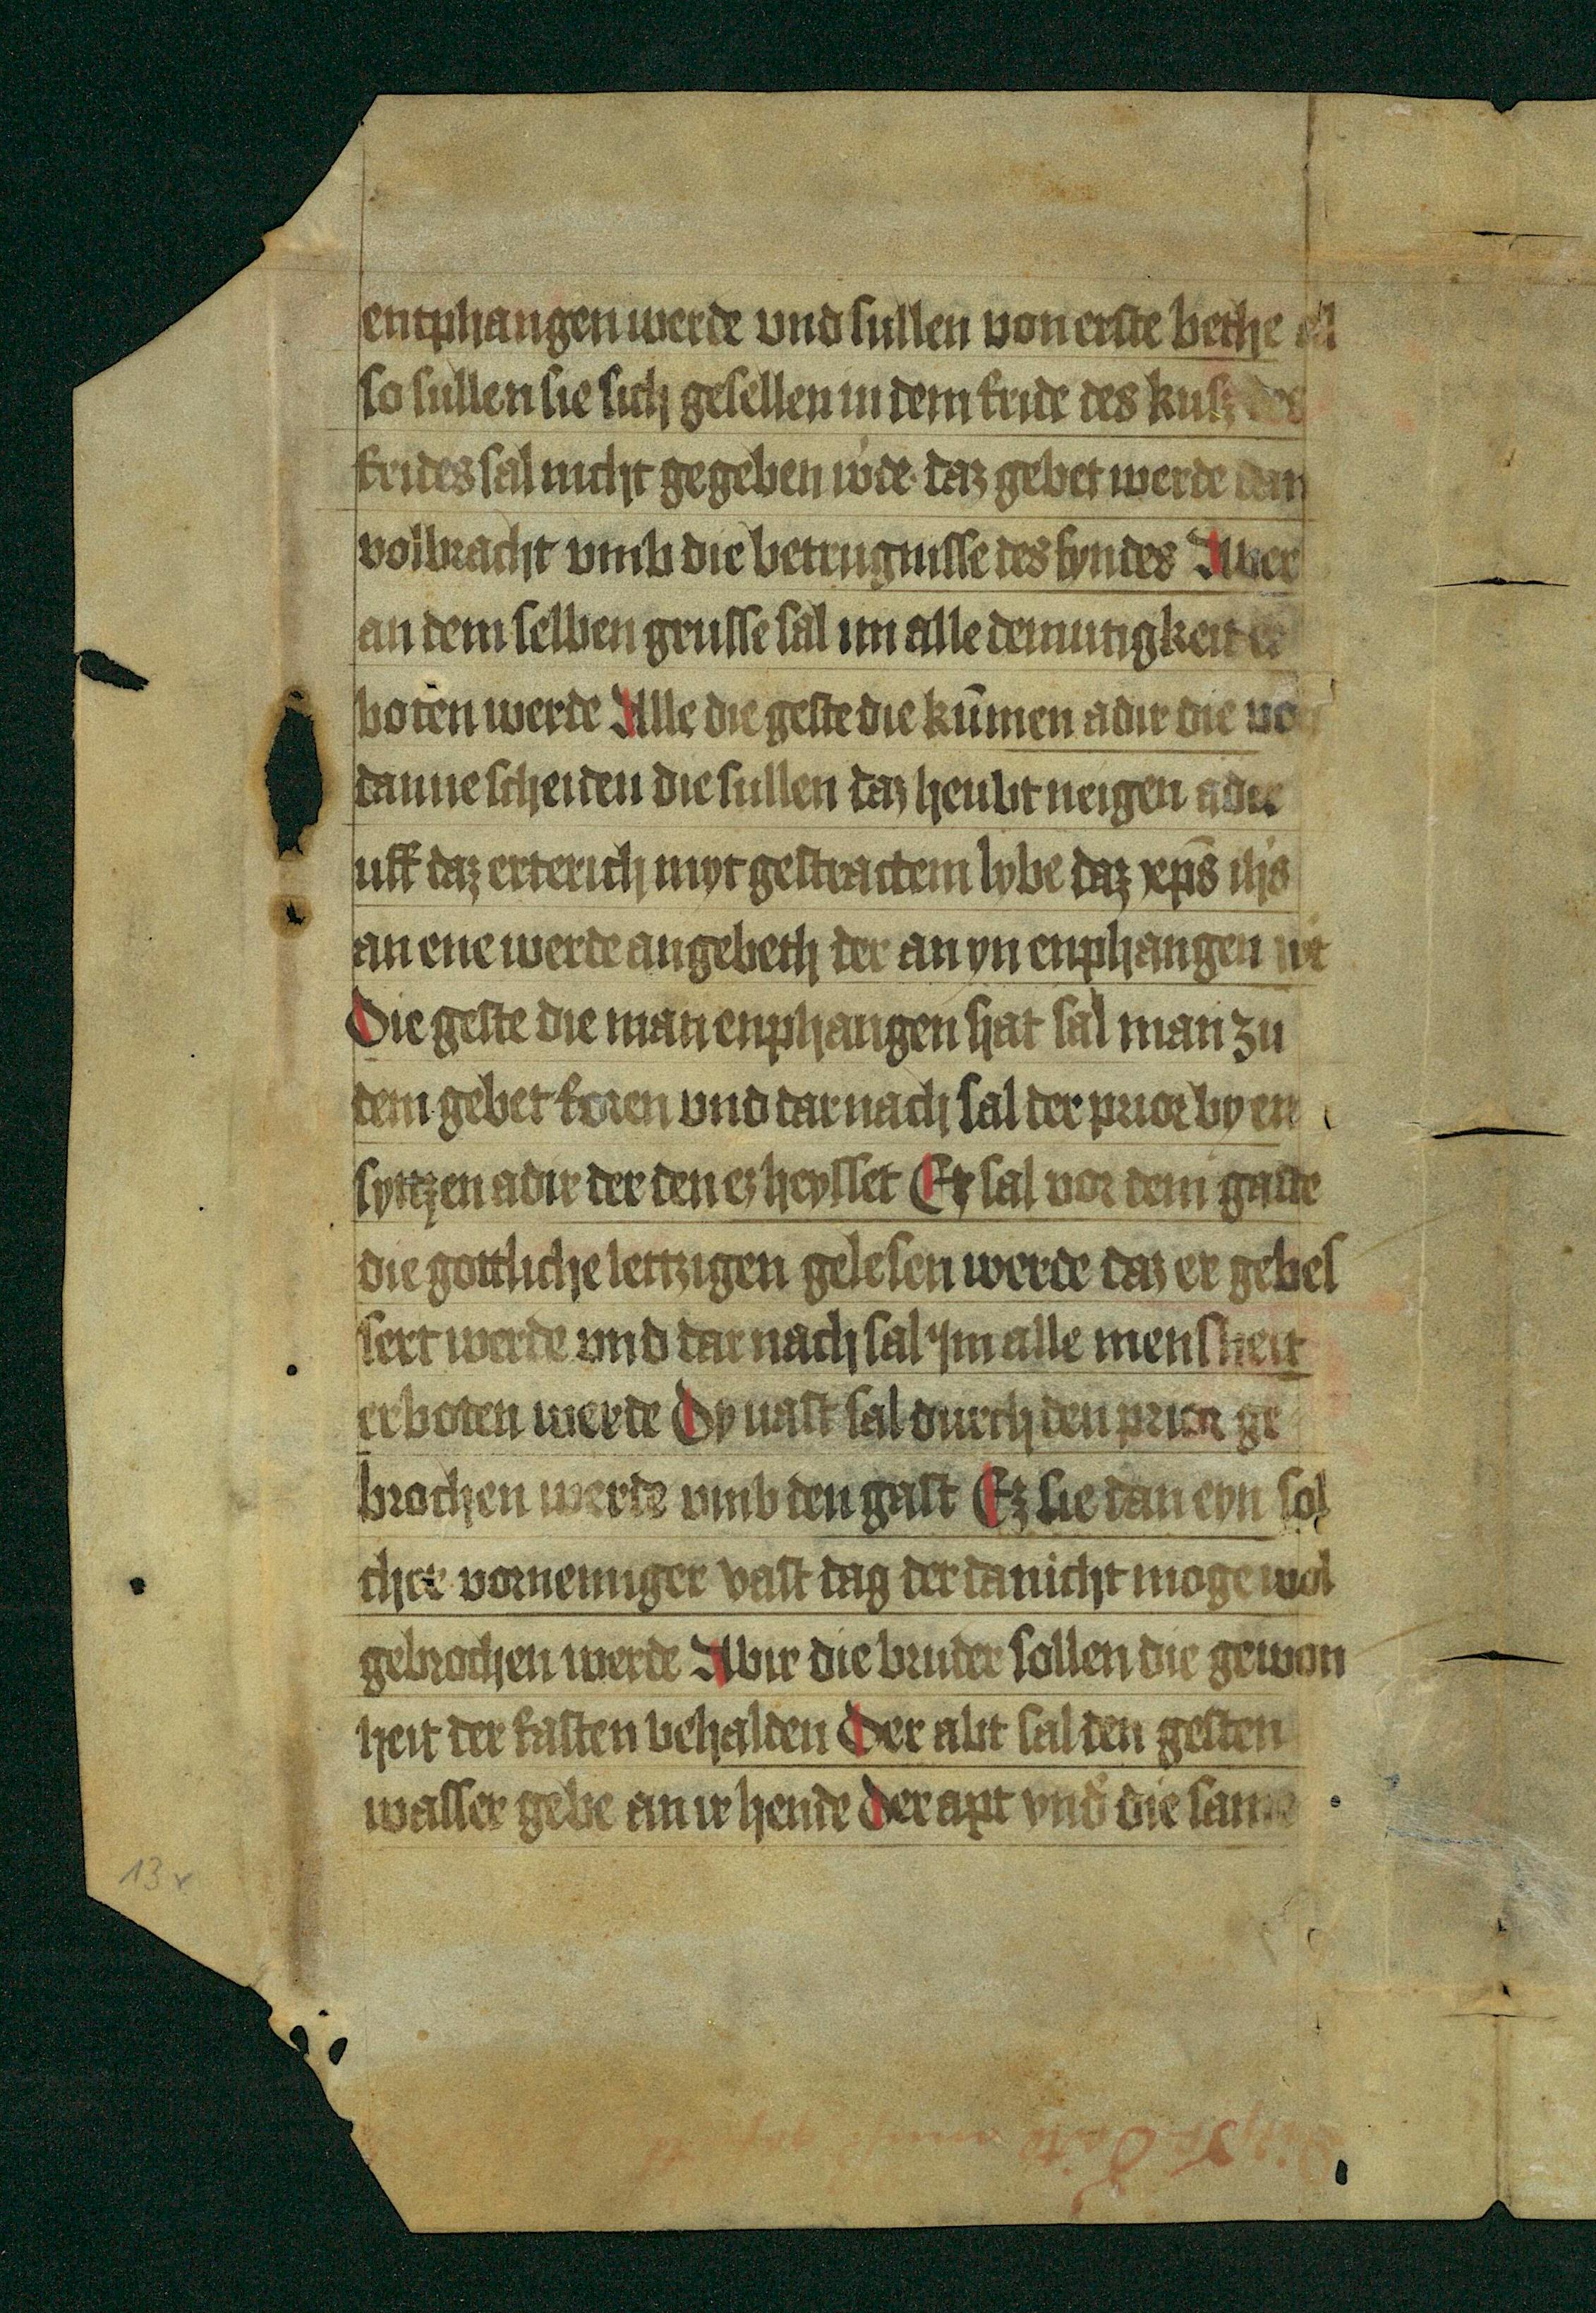 entphangen werde vnd sullen von erste bethe al
so sullen sie sich gesellen in dem fride des kusz des
frides sal nicht gegeben w'de daz gebet werde dan
volbracht vmb die betrugnisse des fyndes Aber
an dem selben grusse sal im alle demutigkeit er
boten werde Alle die geste die kūmen adir die von
danne scheiden die sullen daz heubt neigen adir
uff daz erterich myt gestractem lybe daz xp̄s ih's
an ene werde angebeth der an yn enphangen w't
Die geste die man enphangen hat sal man zu
dem gebet foren vnd dar nach sal der prior by en
syttzen adir der den ez heysset Ez sal vor dem gaste
die gottliche lettzigen gelesen werde daz er gebes
sert werde vnd dar nach sal ym alle mensheit
erboten werde Dy vast sal durch den prior ge
brochen werde vmb den gast Ez sie dan eyn sol
cher vornemiger vast tag der da nicht moge wol
gebrochen werde Abir die bruder sollen die gewon
heit der fasten behalden Der abt sal den gesten
wasser gebe an ir hende Der apt vnd die same
13r